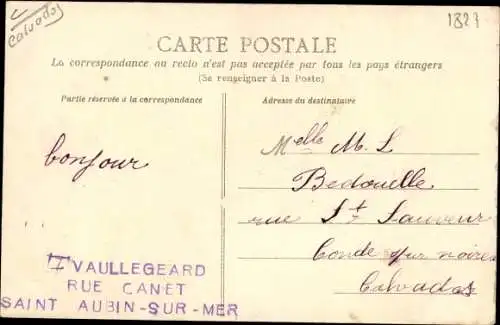 Calvados
1827
CARTE POSTALE
La correspondance au recto n'est pas acceptée par tous les pays étrangers
(Se renseigner à la Poste)
Partie réservée à la correspondance
Adresse du destinataire
bonjour
Melle M. L
Bedouelle
rue St Sauveur
Conde sur noirea
Calvados
VAULLEGEARD
RUE CANET
SAINT AUBIN-SUR-MER